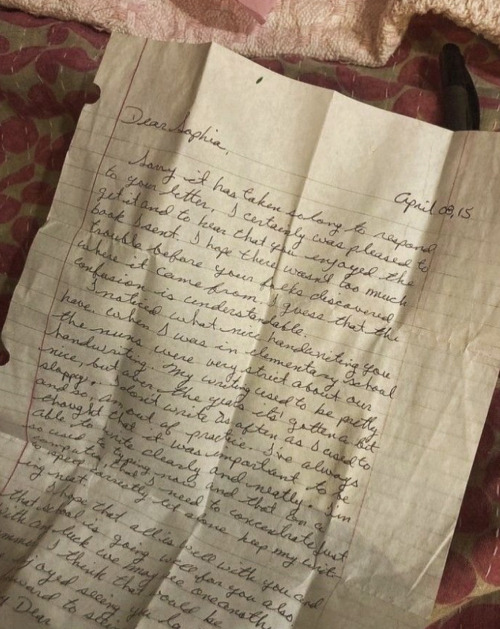 April 08, 15
Dear Sophia,
Sorry it has taken so long to respond
to your letter. I certainly was pleased to
get it and to hear that you enjoyed the
book I sent. I hope there wasn't too much
trouble before your folks discovered
where it came from. I guess that the
confusion is understandable.
I noticed what nice handwriting you
have. When I was in elementary school
the nuns were very strict about our
handwriting. My writing used to be pretty
nice but over the years its' gotten a bit
sloppy. I don't write as often as I used to
and so, am out of practice. I've always
thought that it was important to be
able to write clearly and neatly. I am
so used to typing now and that on a
computer, that I need to concentrate just
to spell correctly let alone keep my writ-
ing neat.
I hope that all is well with you and
that school is going well for you also
With any luck we may see one another
I think that would be
enjoyed seeing you
forward to
Dear